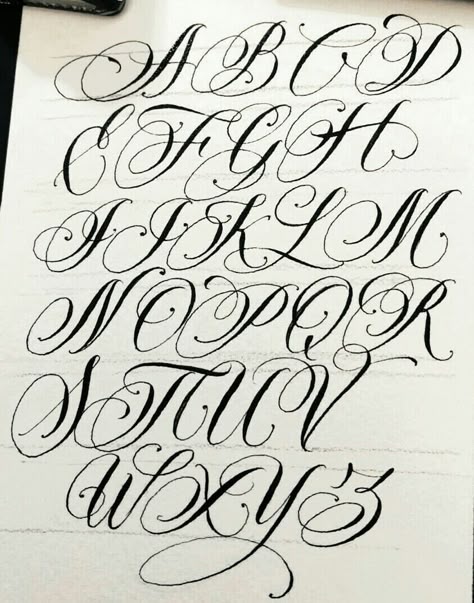 A B C D
E F G H
I J K L M
N O P Q R
S T U V
W X Y Z